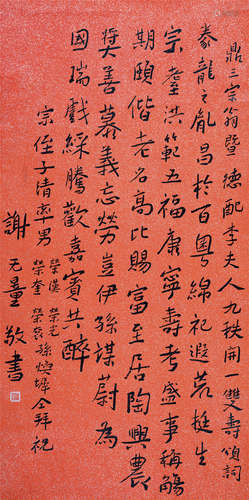 鼎三宗翁暨德配李夫人九秩開一雙壽頌詞
豢龍之胤昌於百粵綿祀遐荒挺生
宗耋洪範五福康寧壽考盛事稱觴
期頤偕老名高比賜富至居陶興農
獎善慕義忘勞豈伊孫謀蔚為
國瑞戲綵騰歡嘉賓共醉
宗侄子清率男
榮漢 榮光
榮奎 榮
孫 仝拜祝
謝无量敬書